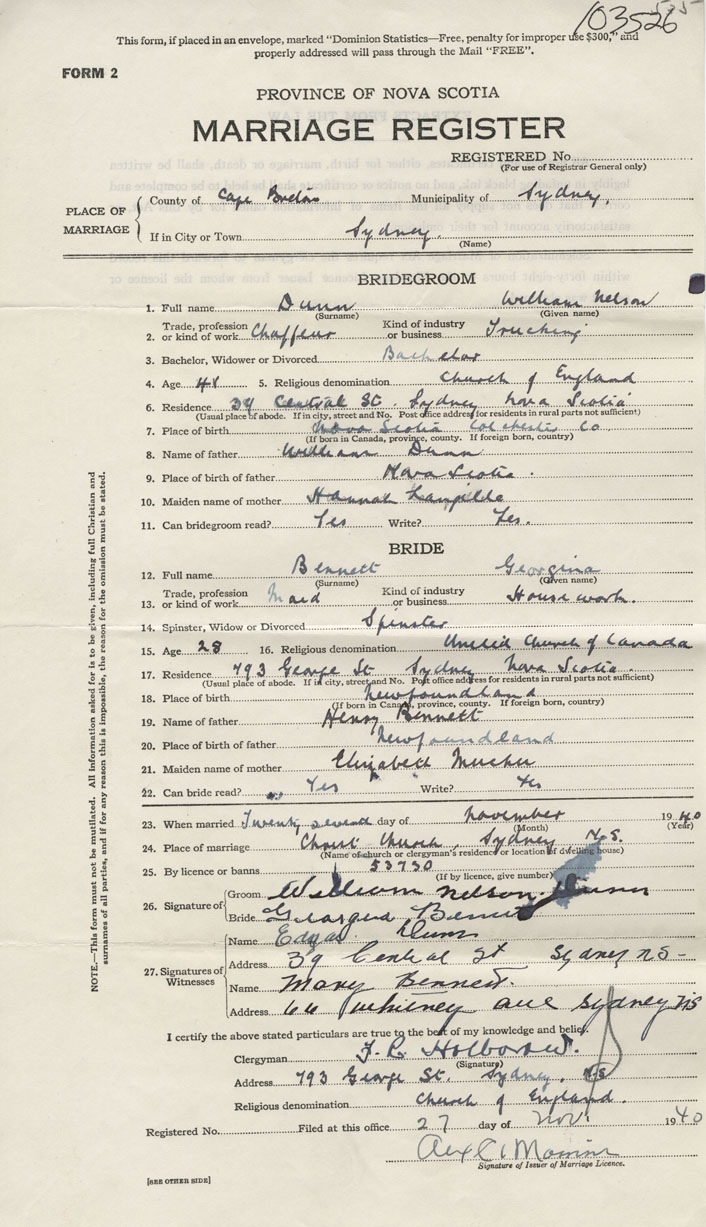 103526
This form, if placed in an envelope, marked "Dominion Statistics—Free, penalty for improper use $300," and
properly addressed will pass through the Mail "FREE".
FORM 2
PROVINCE OF NOVA SCOTIA
MARRIAGE REGISTER
REGISTERED No.
(For use of Registrar General only)
PLACE OF MARRIAGE
County of Cape Breton Municipality of Sydney,
If in City or Town Sydney.
(Name)
BRIDEGROOM
1. Full name Dunn William Nelson
(Surname) (Given name)
2. Trade, profession or kind of work Chaffeur Kind of industry or business Trucking
3. Bachelor, Widower or Divorced Bachelor
4. Age 5. Religious denomination Church of England
6. Residence 39 Central St. Sydney Nova Scotia
(Usual place of abode. If in city, street and No. Post office address for residents in rural parts not sufficient)
7. Place of birth Nova Scotia Colchester Co.
(If born in Canada, province, county. If foreign born, country)
8. Name of father William Dunn
9. Place of birth of father Nova Scotia.
10. Maiden name of mother Hannah
11. Can bridegroom read? Yes Write? Yes.
BRIDE
12. Full name Bennett Georgina
(Surname) (Given name)
13. Trade, profession or kind of work Maid Kind of industry or business Housework.
14. Spinster, Widow or Divorced Spinster
15. Age 28 16. Religious denomination United Church of Canada
17. Residence 793 George St Sydney Nova Scotia.
(Usual place of abode. If in city, street and No. Post office address for residents in rural parts not sufficient)
18. Place of birth Newfoundland
(If born in Canada, province, county. If foreign born, country)
19. Name of father Henry Bennett
20. Place of birth of father Newfoundland
21. Maiden name of mother Elizabeth
22. Can bride read? Yes Write? Yes
23. When married Twenty seventh day of November 1940
(Month) (Year)
24. Place of marriage Christ Church, Sydney N.S.
(Name of church or clergyman's residence or location of dwelling house)
25. By licence or banns 53730
(If by licence, give number)
26. Signature of
Groom William Nelson Dunn
Bride Georgina Bennett
27. Signatures of Witnesses
Name Edgar Dunn
Address 39 Central St Sydney NS -
Name Mary Bennett.
Address 66 Whitney ave Sydney NS
I certify the above stated particulars are true to the best of my knowledge and belief.
Clergyman
(Signature)
Address 793 George St. Sydney. NS
Religious denomination Church of England.
Registered No. Filed at this office 27 day of Nov. 1940
Signature of Issuer of Marriage Licence.
[SEE OTHER SIDE]
NOTE.—This form must not be mutilated. All information asked for is to be given, including full Christian and
surnames of all parties, and if for any reason this is impossible, the reason for the omission must be stated.